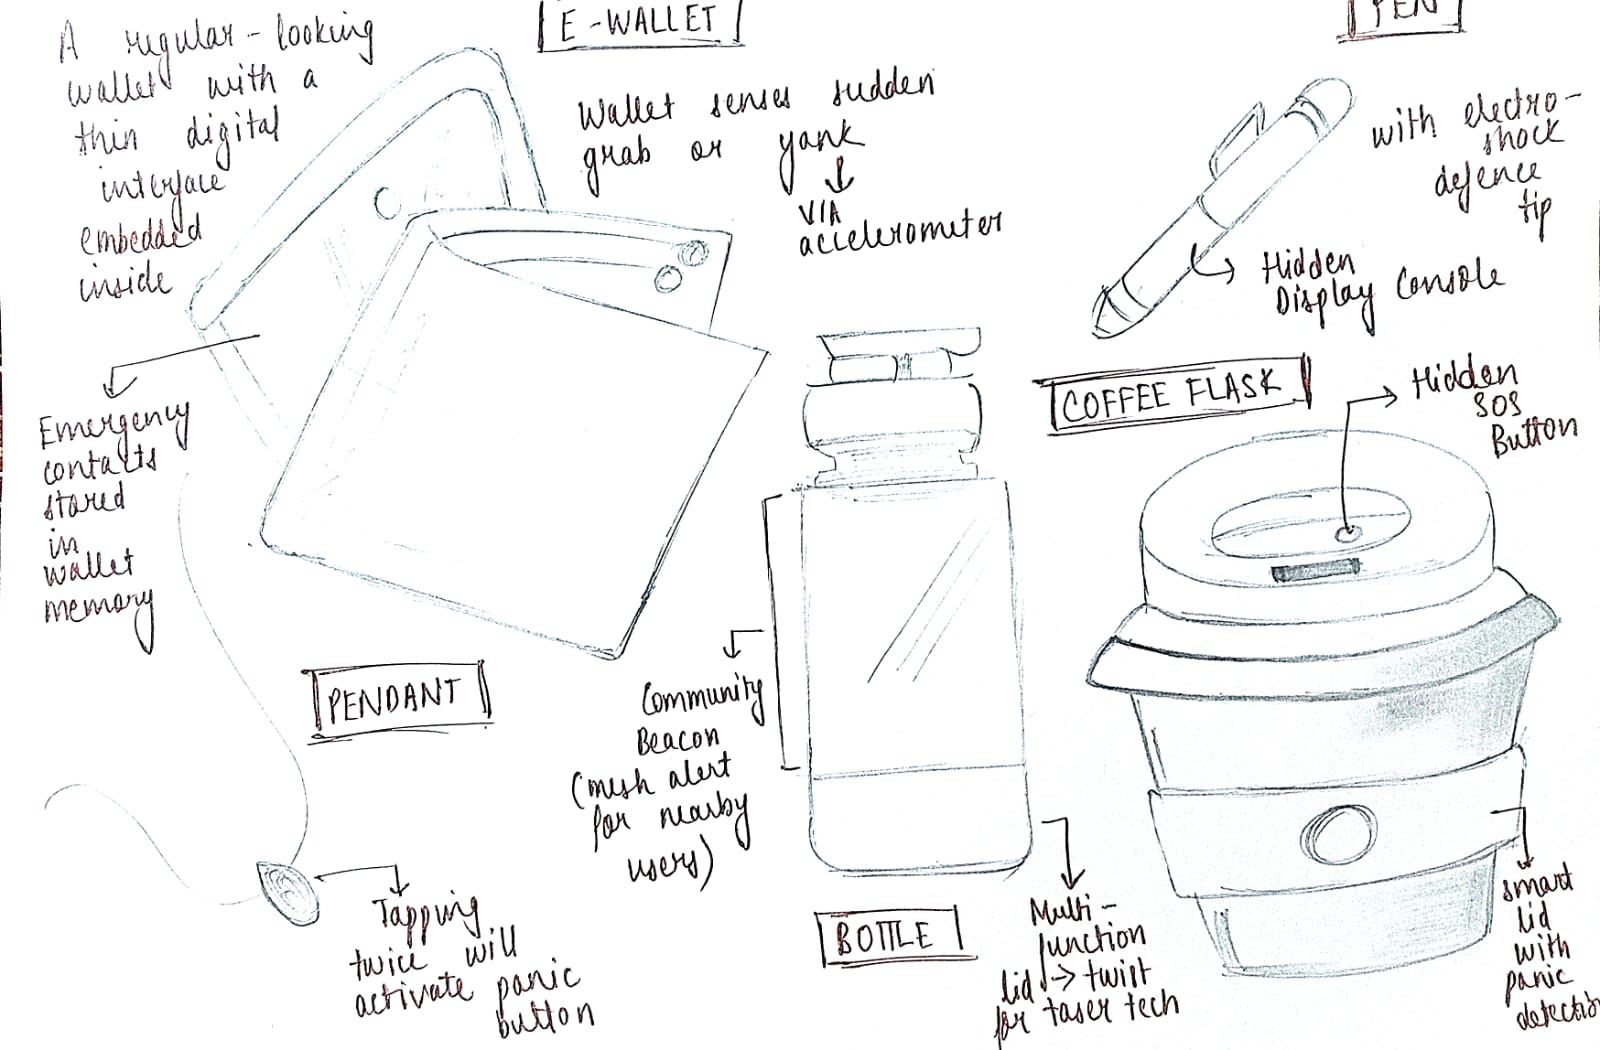 E-WALLET
A regular-looking
wallet with a
thin digital
interface
embedded
inside
Wallet senses sudden
grab or yank
VIA
accelerometer
Emergency
contacts
stored
in
wallet
memory
PEN
with electro-
shock
defence
tip
Hidden
Display Console
COFFEE FLASK
Hidden
SOS
Button
smart
lid
with
panic
PENDANT
Tapping
twice will
activate panic
button
Community
Beacon
(mesh alert
for nearby
users)
BOTTLE
Multi-
function
lid -> twist
for taser tech